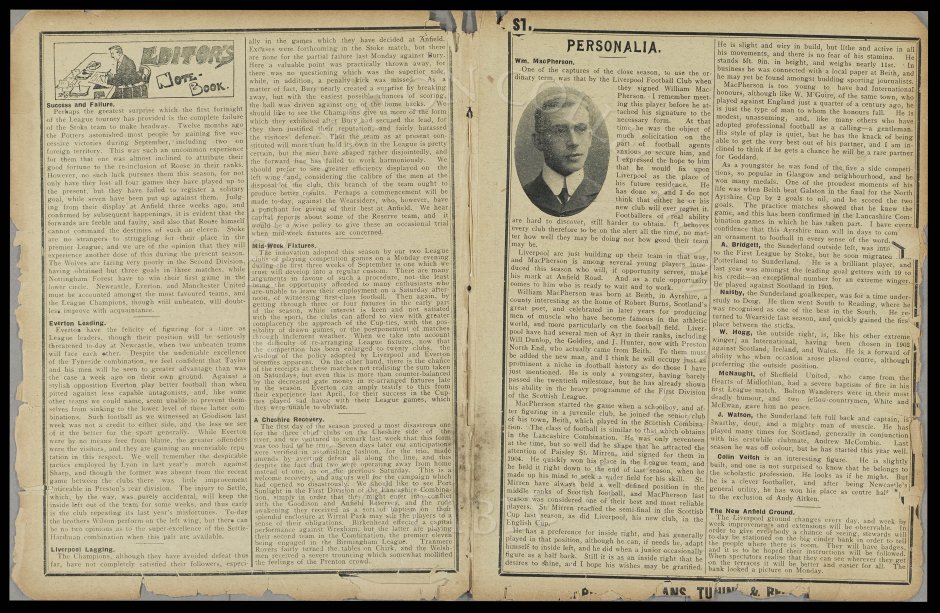 EDITOR'S
NOTE-
BOOK.
Success and Failure.
Perhaps the greatest surprise which the first fortnight
of the League tourney has provided is the complete failure
of the Stoke team to make headway. Twelve months ago
the Potters astonished most people by gaining five suc-
cessive victories during September, including two on
foreign territory. This was such an uncommon experience
for them that one was almost inclined to attribute their
good fortune to the re-inclusion of Roose in their ranks.
However, no such luck pursues them this season, for not
only have they lost all four games they have played up to
the present, but they have failed to register a solitary
goal, while seven have been put up against them. Judg-
ing from their display at Anfield three weeks ago, and
confirmed by subsequent happenings, it is evident that the
forwards are feeble and faulty, and also that Roose himself
cannot command the destinies of such an eleven. Stoke
are no strangers to struggling for their place in the
premier League, and we are of the opinion that they will
experience another dose of this during the present season.
The Wolves are faring very poorly in the Second Division,
having obtained but three goals in three matches, while
Nottingham Forest have won their first game in the
lower circle. Newcastle, Everton, and Manchester United
must be accounted amongst the most favoured teams, and
the League Champions, though still unbeaten, will doubt-
less improve with acquaintance.
Everton Leading.
Everton have the felicity of figuring for a time as
League leaders, though their position will be seriously
threatened to-day at Newcastle, when two unbeaten teams
will face each other. Despite the undeniable excellence
of the Tyneside combination, we feel confident that Taylor
and his men will be seen to greater advantage than was
the case a week ago on their own ground. Against a
stylish opposition Everton play better football than when
pitted against less capable antagonists, and, like some
other teams we could name, seem unable to prevent them-
selves from sinking to the lower level of these latter com-
binations. Such football as we witnessed at Goodison last
week was not a credit to either side, and the less we see
of it the better for the sport generally. While Everton
were by no means free from blame, the greater offenders
were the visitors, and they are gaining an unenviable repu-
tation in this respect. We well remember the despicable
tactics employed by Lyon in last year's match against
Sharp, and though the former was absent from the recent
game between the clubs there was little improvement
noticeable in Preston's rear division. The injury to Settle,
which, by the way, was purely accidental, will keep the
inside left out of the team for some weeks, and thus early
is the club repeating its last year's misfortune. To-day
the brothers Wilson perform on the left wing, but there can
be no two opinions as to the super-excellence of the Settle-
Hardman combination when this pair are available.
Liverpool Lagging.
The Champions, although they have avoided defeat thus
far, have not completely satisfied their followers, especi-
ally in the games which they have decided at Anfield.
Excuses were forthcoming in the Stoke match, but there
are none for the partial failure last Monday against Bury.
Here a valuable point was practically thrown away, for
there was no questioning which was the superior side,
while, in addition, a penalty kick was missed. As a
matter of fact, Bury nearly created a surprise by breaking
away, but with the easiest possible chances of scoring,
the ball was driven against one of the home backs. We
would like to see the Champions give us more of the form
which they exhibited after Bury had secured the lead, for
they then justified their reputation, and fairly harassed
the visitors' defence. That the team as at present con-
stituted will more than hold its own in the League is pretty
certain, but the men have shaped rather disjointedly, and
the forward line has failed to work harmoniously. We
should prefer to see greater efficiency displayed on the
left wing and, considering the calibre of the men at the
disposal of the club, this branch of the team ought to
produce better results. Perhaps a commencement will be
made to-day, against the Wearsiders, who, however, have
a penchant for giving of their best at Anfield. We hear
capital reports about some of the Reserve team, and it
would be a wise policy to give these an occasional trial
when mid-week fixtures are concerned.
Mid-Week Fixtures.
The innovation adopted this season by our two League
clubs of playing competition games on a Monday evening
during the first three weeks of September is one which we
trust will develop into a regular custom. There are many
arguments in favour of such a procedure, not the least
being the opportunity afforded to many enthusiasts who
are unable to leave their employment on a Saturday after-
noon, of witnessing first-class football. Then again, by
getting through three or four fixtures in the early part
of the season, while interest is keen and not satiated
with the sport, the clubs can afford to view with greater
complacency the approach of the Cup-ties, with the pos-
sibility of drawn games, or the postponement of matches
through inclement weather. When we take into account
the difficulty of re-arranging League fixtures, now that
the competition has been enlarged to twenty clubs, the
wisdom of the policy adopted by Liverpool and Everton
becomes apparent. On the other hand, there is the chance
of the receipts at these matches not realising the sum taken
on Saturdays, but even this is more than counter-balanced
by the decreased gate money in re-arranged fixtures late
in the season. Everton can amply testify to this from
their experience last April, for their success in the Cup
ties played sad havoc with their League games, which
they were unable to obviate.
A Cheshire Recovery.
The first day of the season proved a most disastrous one
for the three chief clubs on the Cheshire side of the
river, and we ventured to remark last week that this form
was too bad to be true. Seven days later our anticipations
were verified in astonishing fashion, for the trio, made
amends by averting defeat all along the line, and this
despite the fact that two were operating away from home
instead of one, as on the previous Saturday. This is a
welcome recovery, and augurs well for the campaign which
had opened so disastrously. We should like to see Port
Sunlight in the First Division of the Lancashire Combina-
tion, simply in order that they might enter into conflict
with the Birkonians and Rakers, and the rude
awakening they received as a sort of baptism on their
splendid enclosure at Wirral Park may stir the players to a
sense of their obligations. Birkenhead effected a capital
performance against Wrexham, but the latter are playing
their second team in the Combination, the premier eleven
being engaged in the Birmingham League. Tranmere
Rovers fairly turned the tables on Chirk, and the Welsh-
men received a severe trouncing which somewhat mollified
the feelings of the Prenton crowd.
S1.
PERSONALIA.
Wm. MacPherson.
One of the captures of the close season, to use the or-
dinary term, was that by the Liverpool Football Club when
they signed William Mac-
Pherson. I remember meet-
ing this player before he at-
tached his signature to the
necessary form. At that
time, he was the object of
much solicitation on the
part of football agents
anxious to secure him, and
I expressed the hope to him
that he would fix upon
Liverpool as the place of
his future residence. He
has done so, and I do not
think that either he or his
new club will ever regret it.
Footballers of real ability
are hard to discover, still harder to obtain. It behoves
every club therefore to be on the alert all the time, no mat-
ter how well they may be doing nor how good their team
may be.
Liverpool are just building up their team in that way,
and MacPherson is among several young players intro-
duced this season who will, if opportunity serves, make
his mark at Anfield Road. And as a rule opportunity
comes to him who is ready to wait and to work.
William MacPherson was born at Beith, in Ayrshire, a
county interesting as the home of Robert Burns, Scotland's
great poet, and celebrated in later years for producing
men of muscle who have become famous in the athletic
world, and more particularly on the football field. Liver-
pool have had several men of Ayr in their ranks, including
Will Dunlop, the Goldies, and J. Hunter, now with Preston
North End, who actually came from Beith. To them must
be added the new man, and I think he will occupy just as
prominent a niche in football history as do those I have
just mentioned. He is only a youngster, having barely
passed the twentieth milestone, but he has already shown
his ability in the heavy programme of the First Division
of the Scottish League.
MacPherson started the game when a schoolboy, and af-
ter figuring in a juvenile club, he joined the senior club
of his town, Beith, which played in the Scottish Combina-
tion. The class of football is similar to that which obtains
in the Lancashire Combination. He was only seventeen
at the time, but so well did he shape that he attracted the
attention of Paisley St. Mirren, and signed for them in
1904. He quickly won his place in the League team, and
he held it right down to the end of last season, when he
made up his mind to seek a wider field for his skill. St.
Mirren have always held a well-defined position in the
middle ranks of Scottish football, and MacPherson last
season was considered one of their best and most reliable
players. St. Mirren reached the semi-final in the Scottish
Cup last season, as did Liverpool, his new club, in the
English Cup.
He has a preference for inside right, and has generally
played in that position, although he can, if needs be, adapt
himself to inside left, and he did when a junior occasionally
figure as a half back. Still it is as an inside right that he
desires to shine, and I hope his wishes may be gratified.
He is slight and wiry in build, but lithe and active in all
his movements, and there is no fear of his stamina. He
stands 5ft. 9in. in height, and weighs nearly 11st. In
business he was connected with a local paper at Beith, and
he may yet be found amongst budding sporting journalists.
MacPherson is too young to have had International
honours, although like W. M'Guire, of the same town, who
played against England just a quarter of a century ago, he
is just the type of man to whom the honours fall. He is
modest, unassuming, and, like many others who have
adopted professional football as a calling—a gentleman.
His style of play is quiet, but he has the knack of being
able to get the very best out of his partner, and I am in-
clined to think if he gets a chance he will be a rare partner
for Goddard.
As a youngster he was fond of the five a side competi-
tions, so popular in Glasgow and neighbourhood, and he
won many medals. One of the proudest moments of his
life was when Beith beat Galston in the final for the North
Ayrshire Cup by 2 goals to nil, and he scored the two
goals. The practice matches showed that he knew the
game, and this has been confirmed in the Lancashire Com-
bination games in which he has taken part. You have every
confidence that this Ayrshire man will in days to come
an ornament to football in every sense of the word.
A. Bridgett, the Sunderland outside left, was introduced
to the First League by Stoke, but he soon migrated from
Potterland to Sunderland. He is a brilliant player, and
last year was amongst the leading goal getters with 19 to
his credit—an exceptional number for an extreme winger.
He played against Scotland in 1905.
Naisby, the Sunderland goalkeeper, was for a time under-
study to Doig. He then went South to Reading, where he
was recognised as one of the best in the South. He re-
turned to Wearside last season, and quickly gained the first
place between the sticks.
W. Hogg, the outside right, is, like his other extreme
winger, an International, having been chosen in 1902
against Scotland, Ireland, and Wales. He is a forward of
ability who when occasion arose played centre, although
preferring the outside position.
McNaught, of Sheffield United, who came from the
Hearts of Midlothian, had a severe baptism of fire in his
first League match. Bolton Wanderers were in their most
deadly humour, and two fellow-countrymen, White and
McEwan, gave him no peace.
J. Watson, the Sunderland left full back and captain, is
Swarthy, dour, and a mighty man of muscle. He has
played many times for Scotland, generally in conjunction
with his erstwhile clubmate, Andrew McCombie. Last
season he was off colour, but he has started this year well.
Colin Veitch is an interesting figure. He is slightly
built, and one is not surprised to know that he belongs to
the scholastic profession. He looks as if he might. But
he is a clever footballer, and after being Newcastle's
general utility, he has won his place as centre half
to the exclusion of Andy Aitken.
The New Anfield Ground.
The Liverpool ground changes every day, and week by
week improvements and extensions will be observable. In
order to give everybody a chance of seeing, stewards will
to-day be stationed on the big cinder bank in order to tell
the people where there is room. They will have badges,
and it is to be hoped their instructions will be followed.
When spectators realise that they can see wherever they get
on the terraces it will be better and easier for all. The
bank looked a picture on Monday.